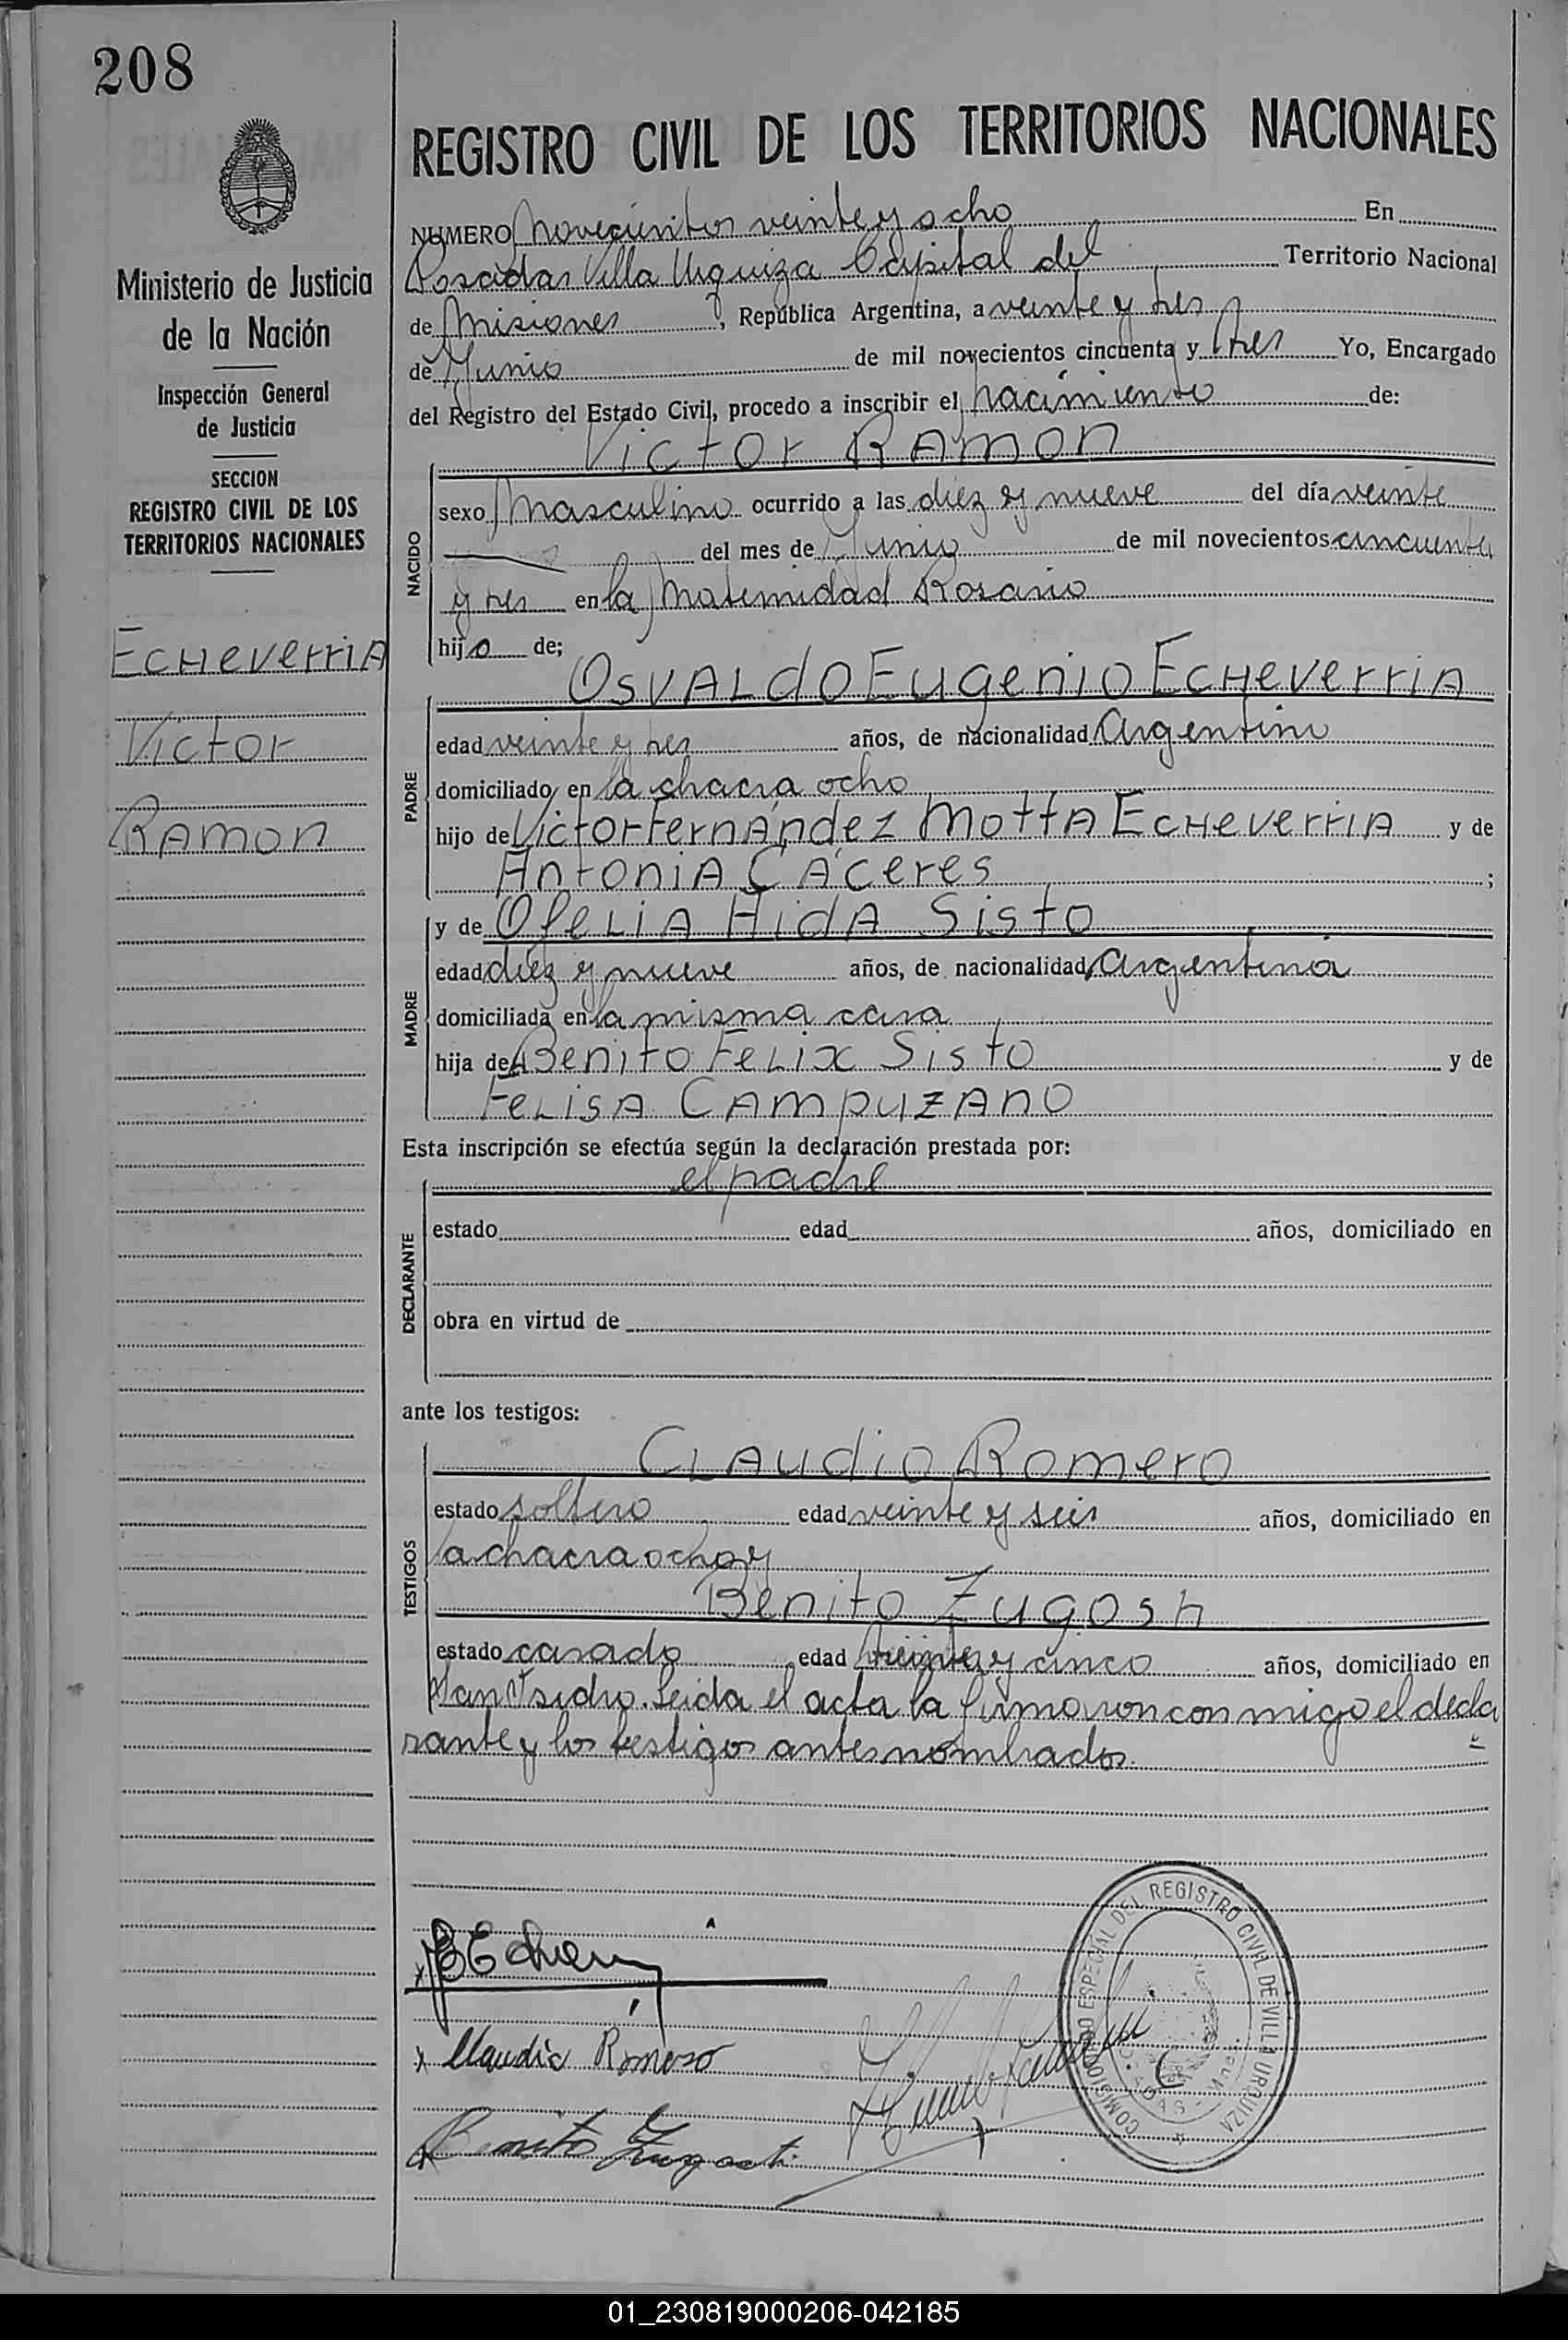 208
REGISTRO CIVIL DE LOS TERRITORIOS NACIONALES
Ministerio de Justicia
de la Nación
Inspección General
de Justicia
SECCION
REGISTRO CIVIL DE LOS
TERRITORIOS NACIONALES
Echeverria
Victor
Ramon
NUMERO novecientos veinte y ocho En
Posadas Villa Urquiza Capital del Territorio Nacional
de Misiones, República Argentina, a veinte y tres
de Junio de mil novecientos cincuenta y tres Yo, Encargado
del Registro del Estado Civil, procedo a inscribir el nacimiento de:
Victor Ramon
NACIDO
sexo Masculino ocurrido a las diez y nueve del día veinte
del mes de Junio de mil novecientos cincuenta
y tres en la Maternidad Rosario
hijo de;
Osvaldo Eugenio Echeverria
PADRE
edad veinte y tres años, de nacionalidad Argentino
domiciliado en la chacra ocho
hijo de Victor Fernández Motta Echeverria y de
Antonia Cáceres ;
MADRE
y de Ofelia Hida Sisto
edad diez y nueve años, de nacionalidad Argentina
domiciliada en la misma casa
hija de Benito Felix Sisto y de
Felisa Campuzano
Esta inscripción se efectúa según la declaración prestada por:
el padre
DECLARANTE
estado edad años, domiciliado en
obra en virtud de
ante los testigos:
TESTIGOS
Claudio Romero
estado soltero edad veinte y seis años, domiciliado en
la chacra ocho y
Benito Zugosti
estado casado edad y cinco años, domiciliado en
San Isidro. Leida el acta la firmaron con migo el decla
rante y los testigos antes nombrados.
Claudio Romero
Benito Zugasti
COMISIONADO ESPECIAL DEL REGISTRO CIVIL DE VILLA URQUIZA
01_230819000206-042185